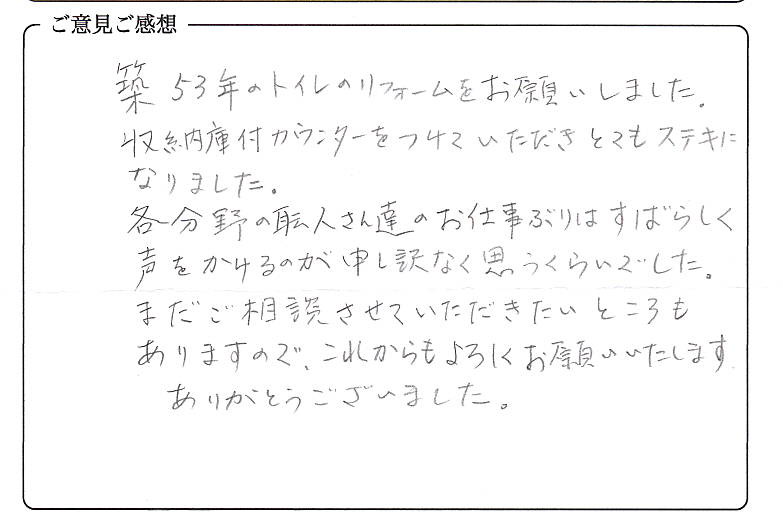 ご意見ご感想
築53年のトイレのリフォームをお願いしました。
収納庫付カウンターをつけていただきとてもステキに
なりました。
各分野の職人さん達のお仕事ぶりはすばらしく
声をかけるのが申し訳なく思うくらいでした。
まだご相談させていただきたいところも
ありますので、これからもよろしくお願いいたします
ありがとうございました。